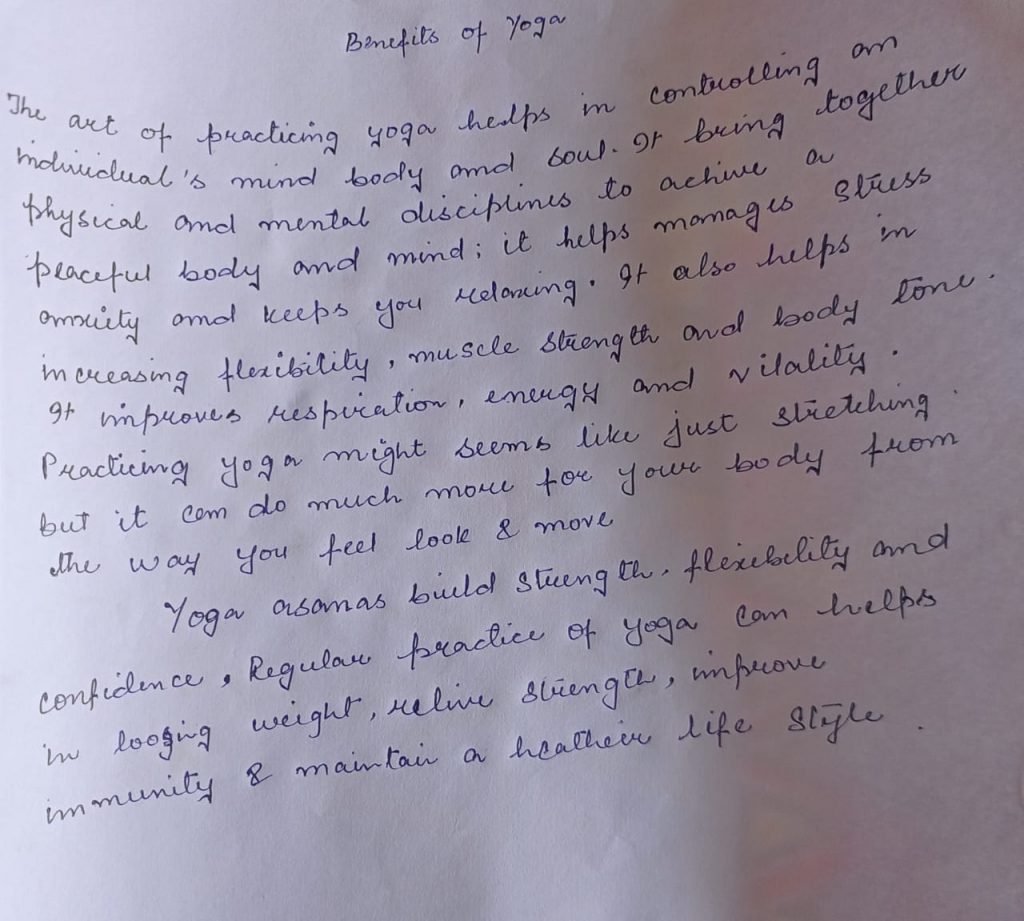 Benefits of Yoga
The art of practicing yoga helps in controlling an
individual's mind body and soul. It bring together
physical and mental disciplines to achive a
peaceful body and mind; it helps manages stress
anxiety and keeps you relaxing. It also helps in
increasing flexibility, muscle strength and body tone.
It improves respiration, energy and vitality.
Practicing yoga might seems like just stretching.
but it can do much more for your body from
the way you feel look & move
Yoga asanas build strength, flexibility and
confidence, Regular practice of yoga can helps
in loosing weight, relive strength, improve
immunity & maintain a healtheir life style.